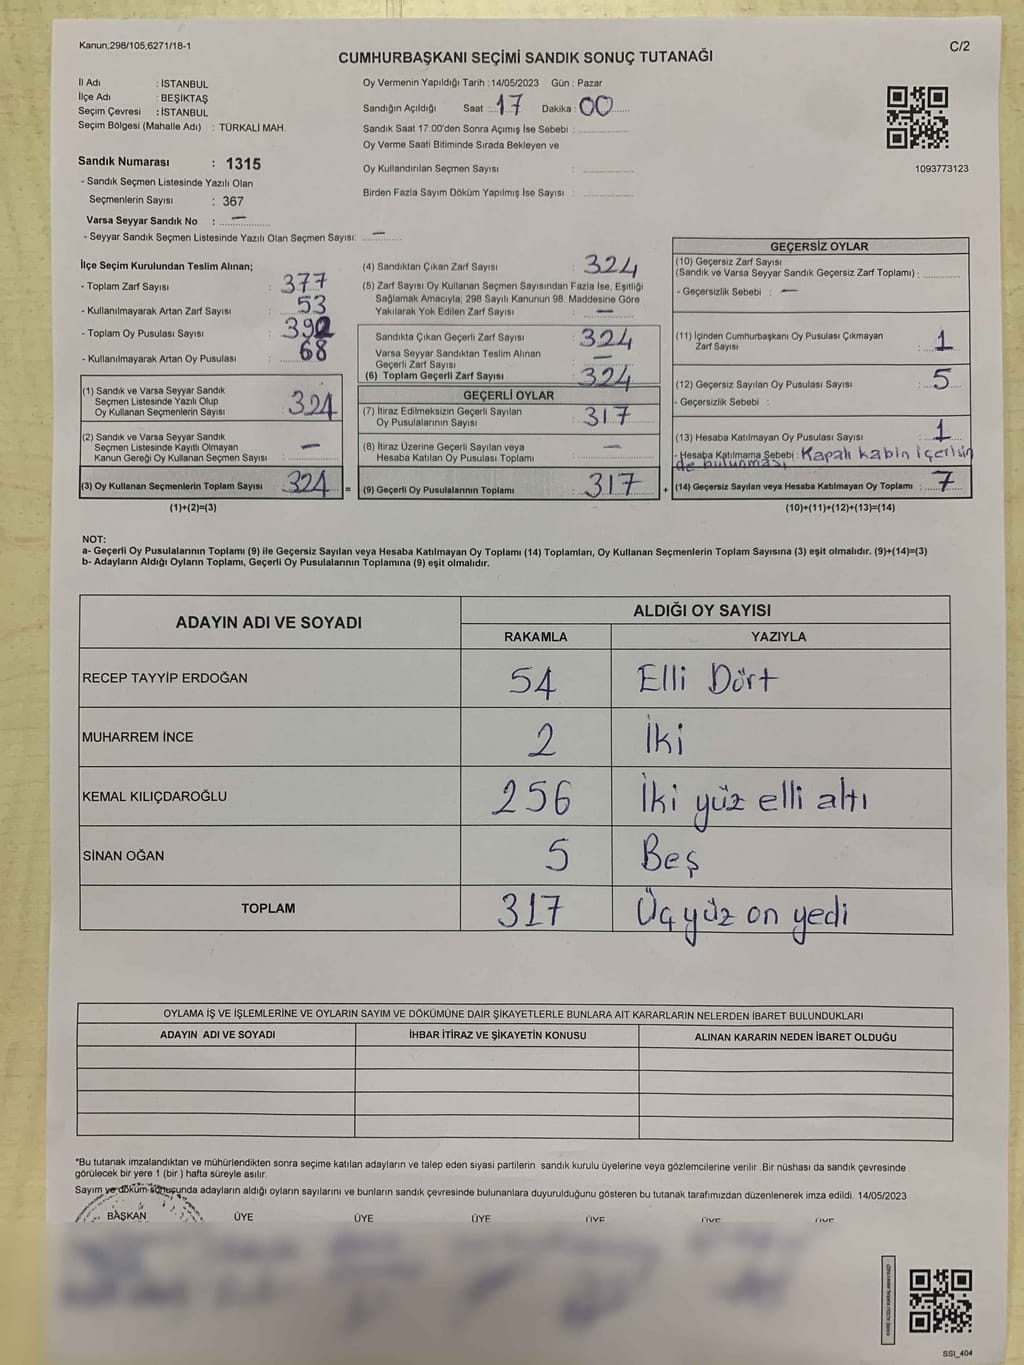 Kanun,298/105,6271/18-1
C/2
CUMHURBAŞKANI SEÇİMİ SANDIK SONUÇ TUTANAĞI
İl Adı : İSTANBUL
İlçe Adı : BEŞİKTAŞ
Seçim Çevresi : İSTANBUL
Seçim Bölgesi (Mahalle Adı) : TÜRKALİ MAH.
Oy Vermenin Yapıldığı Tarih : 14/05/2023 Gün : Pazar
Sandığın Açıldığı Saat : 17 Dakika : 00
Sandık Saat 17:00'den Sonra Açımış İse Sebebi :
Oy Verme Saati Bitiminde Sırada Bekleyen ve
Oy Kullandırılan Seçmen Sayısı :
Birden Fazla Sayım Döküm Yapılmış İse Sayısı :
1093773123
Sandık Numarası : 1315
- Sandık Seçmen Listesinde Yazılı Olan
Seçmenlerin Sayısı : 367
Varsa Seyyar Sandık No : —
- Seyyar Sandık Seçmen Listesinde Yazılı Olan Seçmen Sayısı: —
İlçe Seçim Kurulundan Teslim Alınan;
- Toplam Zarf Sayısı : 377
- Kullanılmayarak Artan Zarf Sayısı : 53
- Toplam Oy Pusulası Sayısı : 392
- Kullanılmayarak Artan Oy Pusulası : 68
(1) Sandık ve Varsa Seyyar Sandık
Seçmen Listesinde Yazılı Olup
Oy Kullanan Seçmenlerin Sayısı : 324
(2) Sandık ve Varsa Seyyar Sandık
Seçmen Listesinde Kayıtlı Olmayan
Kanun Gereği Oy Kullanan Seçmen Sayısı : —
(3) Oy Kullanan Seçmenlerin Toplam Sayısı : 324 =
(1)+(2)=(3)
(4) Sandıktan Çıkan Zarf Sayısı : 324
(5) Zarf Sayısı Oy Kullanan Seçmen Sayısından Fazla İse, Eşitliği
Sağlamak Amacıyla; 298 Sayılı Kanunun 98. Maddesine Göre
Yakılarak Yok Edilen Zarf Sayısı : —
Sandıkta Çıkan Geçerli Zarf Sayısı : 324
Varsa Seyyar Sandıktan Teslim Alınan
Geçerli Zarf Sayısı : —
(6) Toplam Geçerli Zarf Sayısı : 324
GEÇERLİ OYLAR
(7) İtiraz Edilmeksizin Geçerli Sayılan
Oy Pusulalarının Sayısı : 317
(8) İtiraz Üzerine Geçerli Sayılan veya
Hesaba Katılan Oy Pusulası Toplamı : —
(9) Geçerli Oy Pusulalarının Toplamı : 317 +
GEÇERSİZ OYLAR
(10) Geçersiz Zarf Sayısı
(Sandık ve Varsa Seyyar Sandık Geçersiz Zarf Toplamı) :
- Geçersizlik Sebebi : —
(11) İçinden Cumhurbaşkanı Oy Pusulası Çıkmayan
Zarf Sayısı : 1
(12) Geçersiz Sayılan Oy Pusulası Sayısı : 5
- Geçersizlik Sebebi :
(13) Hesaba Katılmayan Oy Pusulası Sayısı : 1
- Hesaba Katılmama Sebebi : Kapalı kabin içerisin
de bulunması
(14) Geçersiz Sayılan veya Hesaba Katılmayan Oy Toplamı : 7
(10)+(11)+(12)+(13)=(14)
NOT:
a- Geçerli Oy Pusulalarının Toplamı (9) ile Geçersiz Sayılan veya Hesaba Katılmayan Oy Toplamı (14) Toplamları, Oy Kullanan Seçmenlerin Toplam Sayısına (3) eşit olmalıdır. (9)+(14)=(3)
b- Adayların Aldığı Oyların Toplamı, Geçerli Oy Pusulalarının Toplamına (9) eşit olmalıdır.
ADAYIN ADI VE SOYADI ALDIĞI OY SAYISI
RAKAMLA YAZIYLA
RECEP TAYYİP ERDOĞAN 54 Elli Dört
MUHARREM İNCE 2 İki
KEMAL KILIÇDAROĞLU 256 İki yüz elli altı
SİNAN OĞAN 5 Beş
TOPLAM 317 Üçyüz on yedi
OYLAMA İŞ VE İŞLEMLERİNE VE OYLARIN SAYIM VE DÖKÜMÜNE DAİR ŞİKAYETLERLE BUNLARA AİT KARARLARIN NELERDEN İBARET BULUNDUKLARI
ADAYIN ADI VE SOYADI İHBAR İTİRAZ VE ŞİKAYETİN KONUSU ALINAN KARARIN NEDEN İBARET OLDUĞU
*Bu tutanak imzalandıktan ve mühürlendikten sonra seçime katılan adayların ve talep eden siyasi partilerin sandık kurulu üyelerine veya gözlemcilerine verilir. Bir nüshası da sandık çevresinde
görülecek bir yere 1 (bir) hafta süreyle asılır.
Sayım ve döküm sonucunda adayların aldığı oyların sayılarını ve bunların sandık çevresinde bulunanlara duyurulduğunu gösteren bu tutanak tarafımızdan düzenlenerek imza edildi. 14/05/2023
BAŞKAN ÜYE ÜYE ÜYE ÜYE ÜYE ÜYE
SSI_404